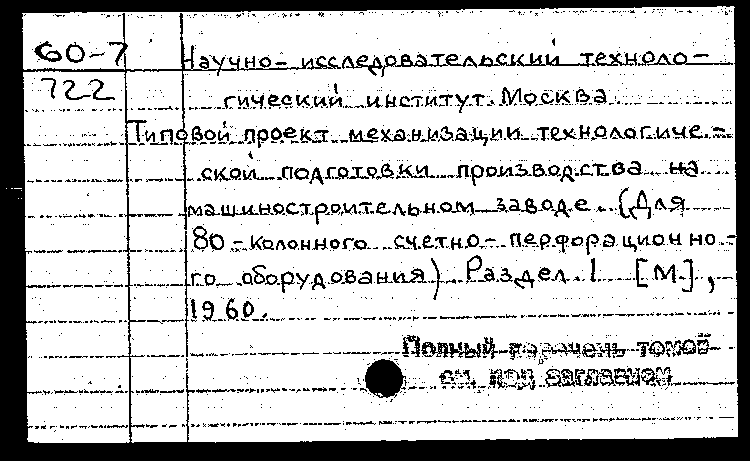 60-7
722
Научно-исследовательский техноло-
гический институт. Москва
Типовой проект механизации технологиче-
ской подготовки производства на
машиностроительном заводе. (Для
80-колонного счетно-перфорационно-
го оборудования) Раздел. 1 [М.],
1960.
Полный перечень томов
см. под заглавием